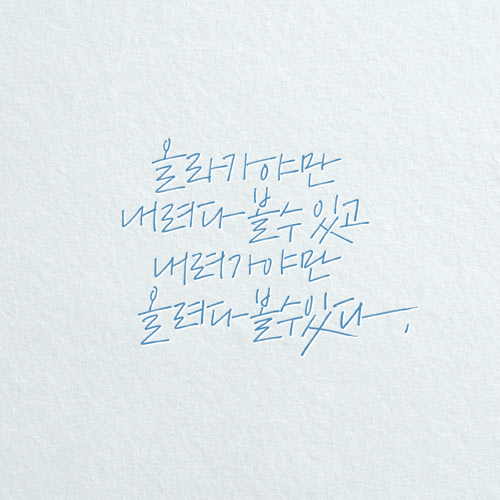 올라가야만
내려다 볼 수 있고
내려가야만
올려다 볼 수 있다.